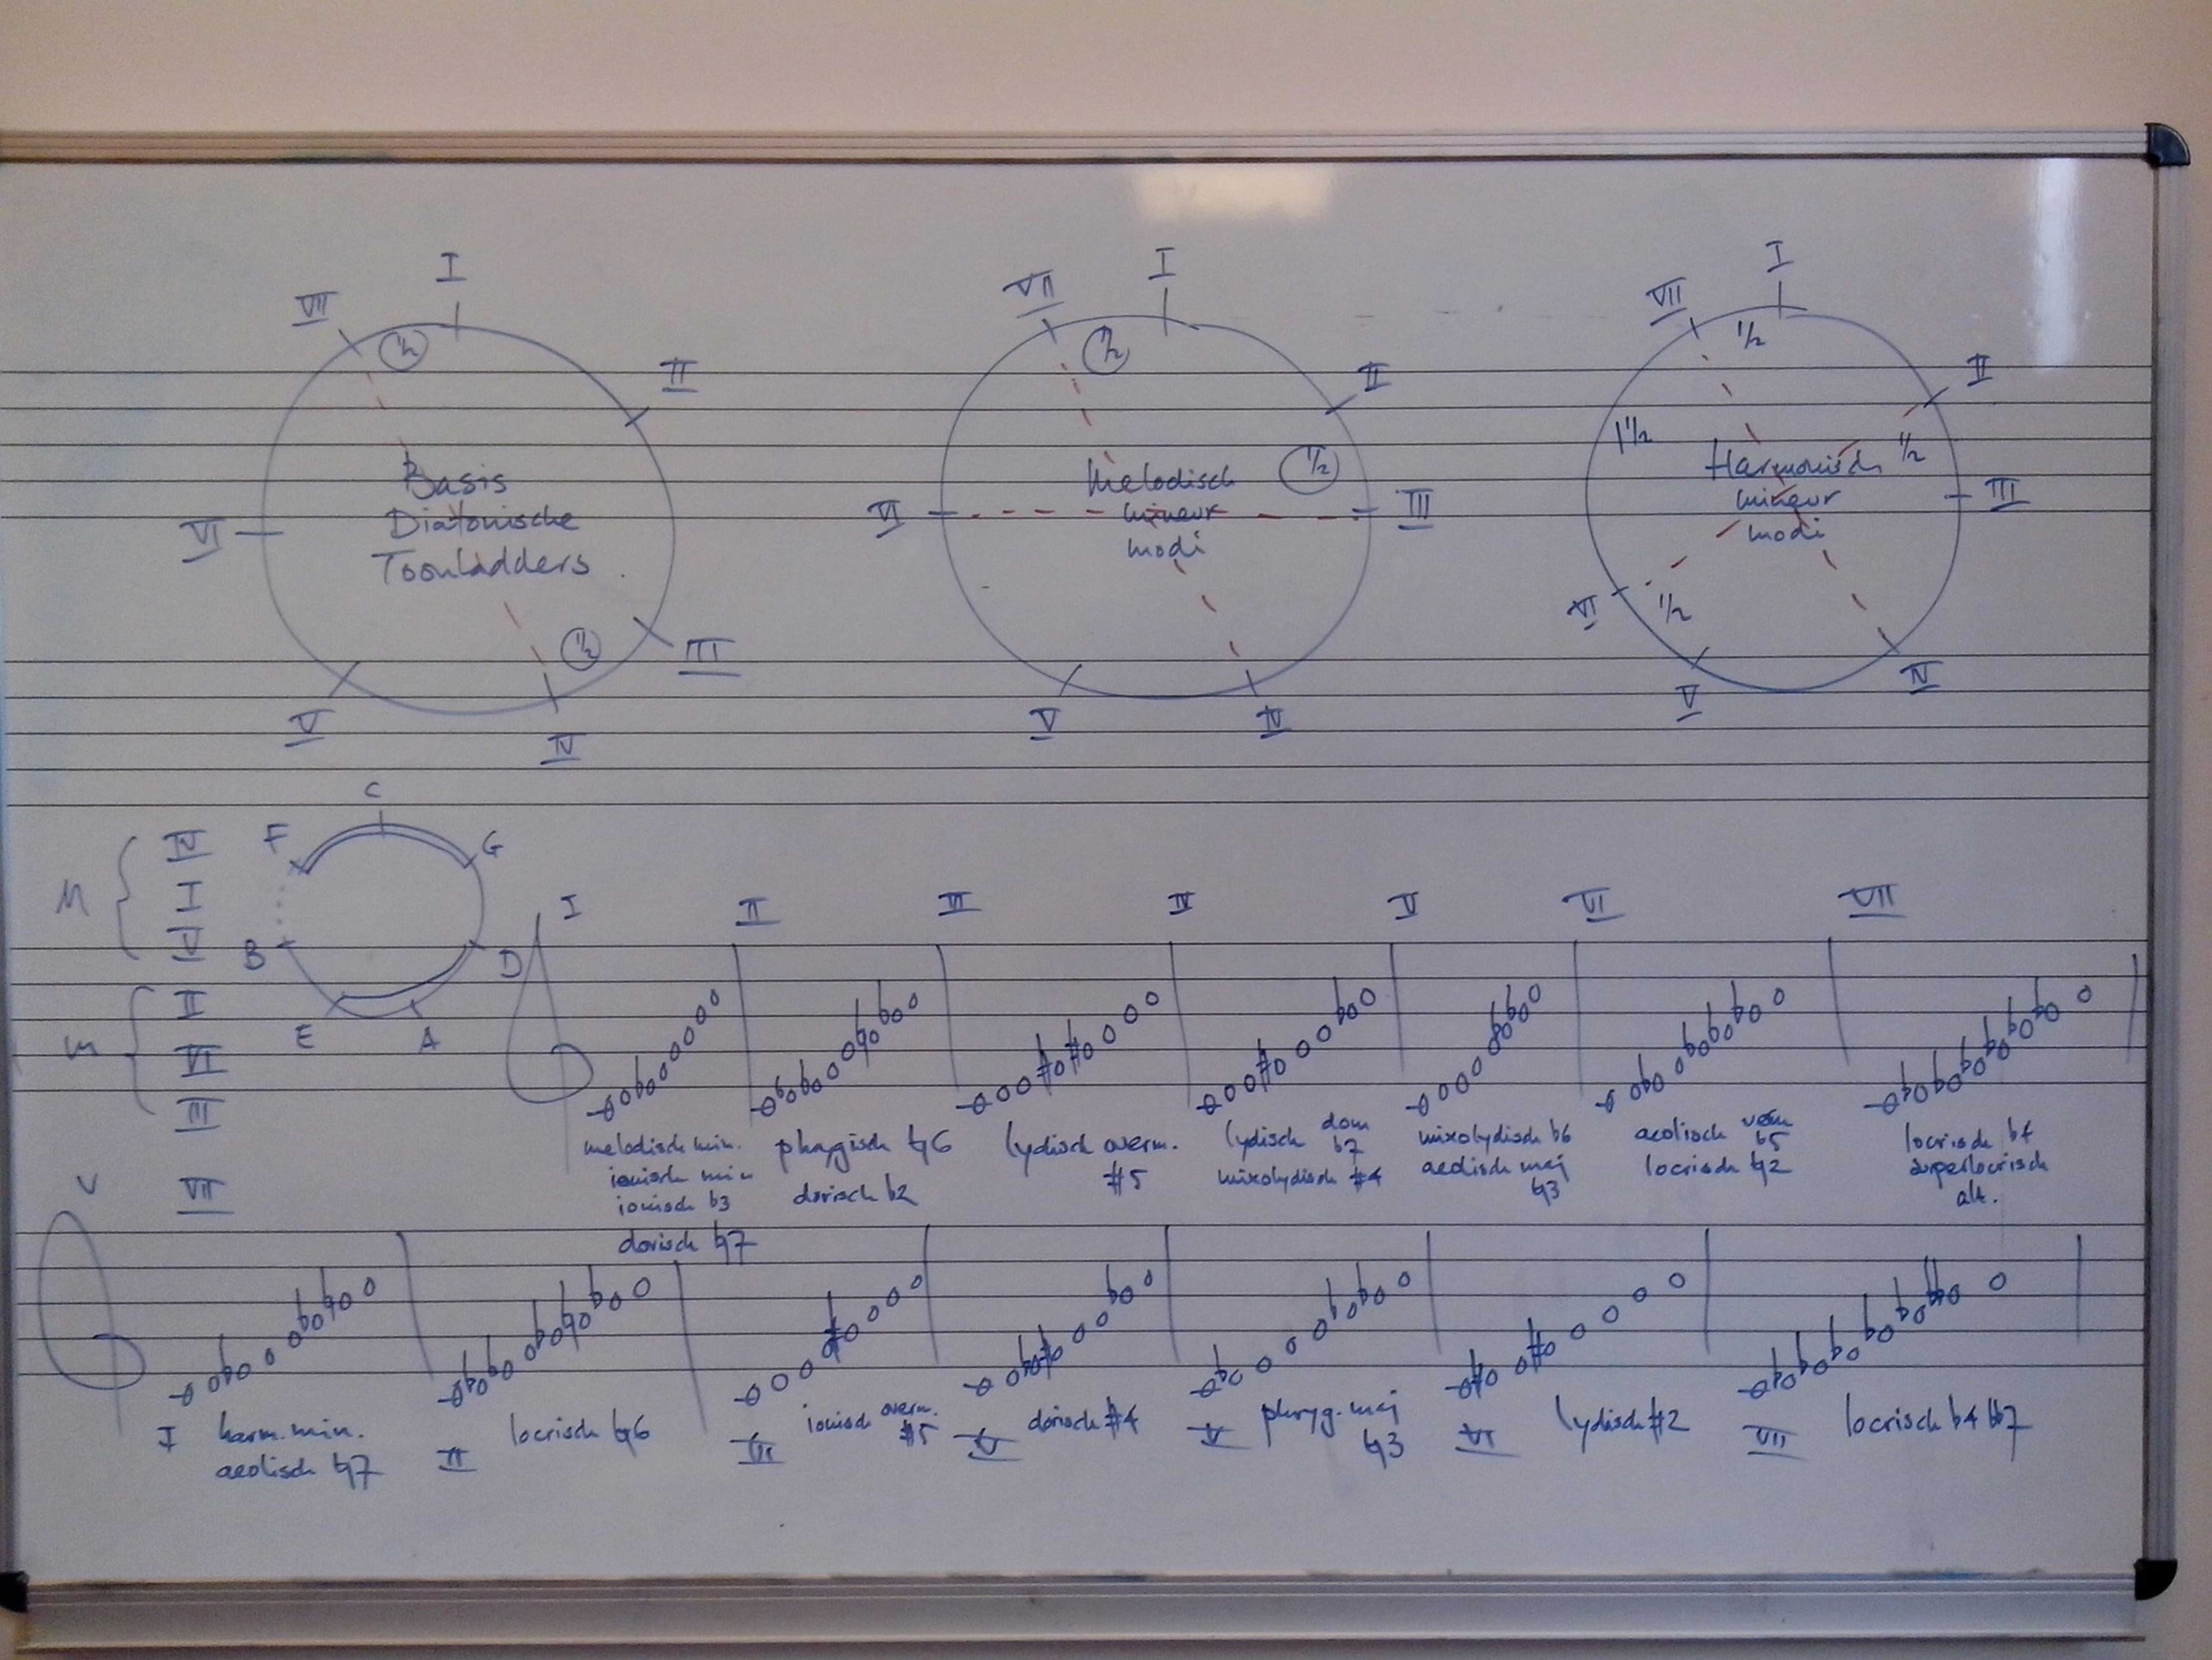 I
VII
½
II
Basis
Diatonische
Toonladders
VI
½
III
V
IV
I
VII
½
II
Melodisch
mineur
modi
½
VI
III
V
IV
I
VII
½
II
1½
Harmonisch
mineur
modi
½
III
VI
½
V
IV
C
F
G
B
D
E
A
M
IV
I
V
m
II
VI
III
V
VII
I
II
III
IV
V
VI
VII
melodisch min.
ionisch min
ionisch b3
dorisch ♮7
phrygisch ♮6
dorisch b2
lydisch overm.
#5
lydisch dom
b7
mixolydisch #4
mixolydisch b6
aeolisch maj
♮3
aeolisch verm
b5
locrisch ♮2
locrisch b4
superlocrisch
alt.
I harm. min.
aeolisch ♮7
II locrisch ♮6
III ionisch overm.
#5
IV dorisch #4
V phryg. maj
♮3
VI lydisch #2
VII locrisch b4 bb7